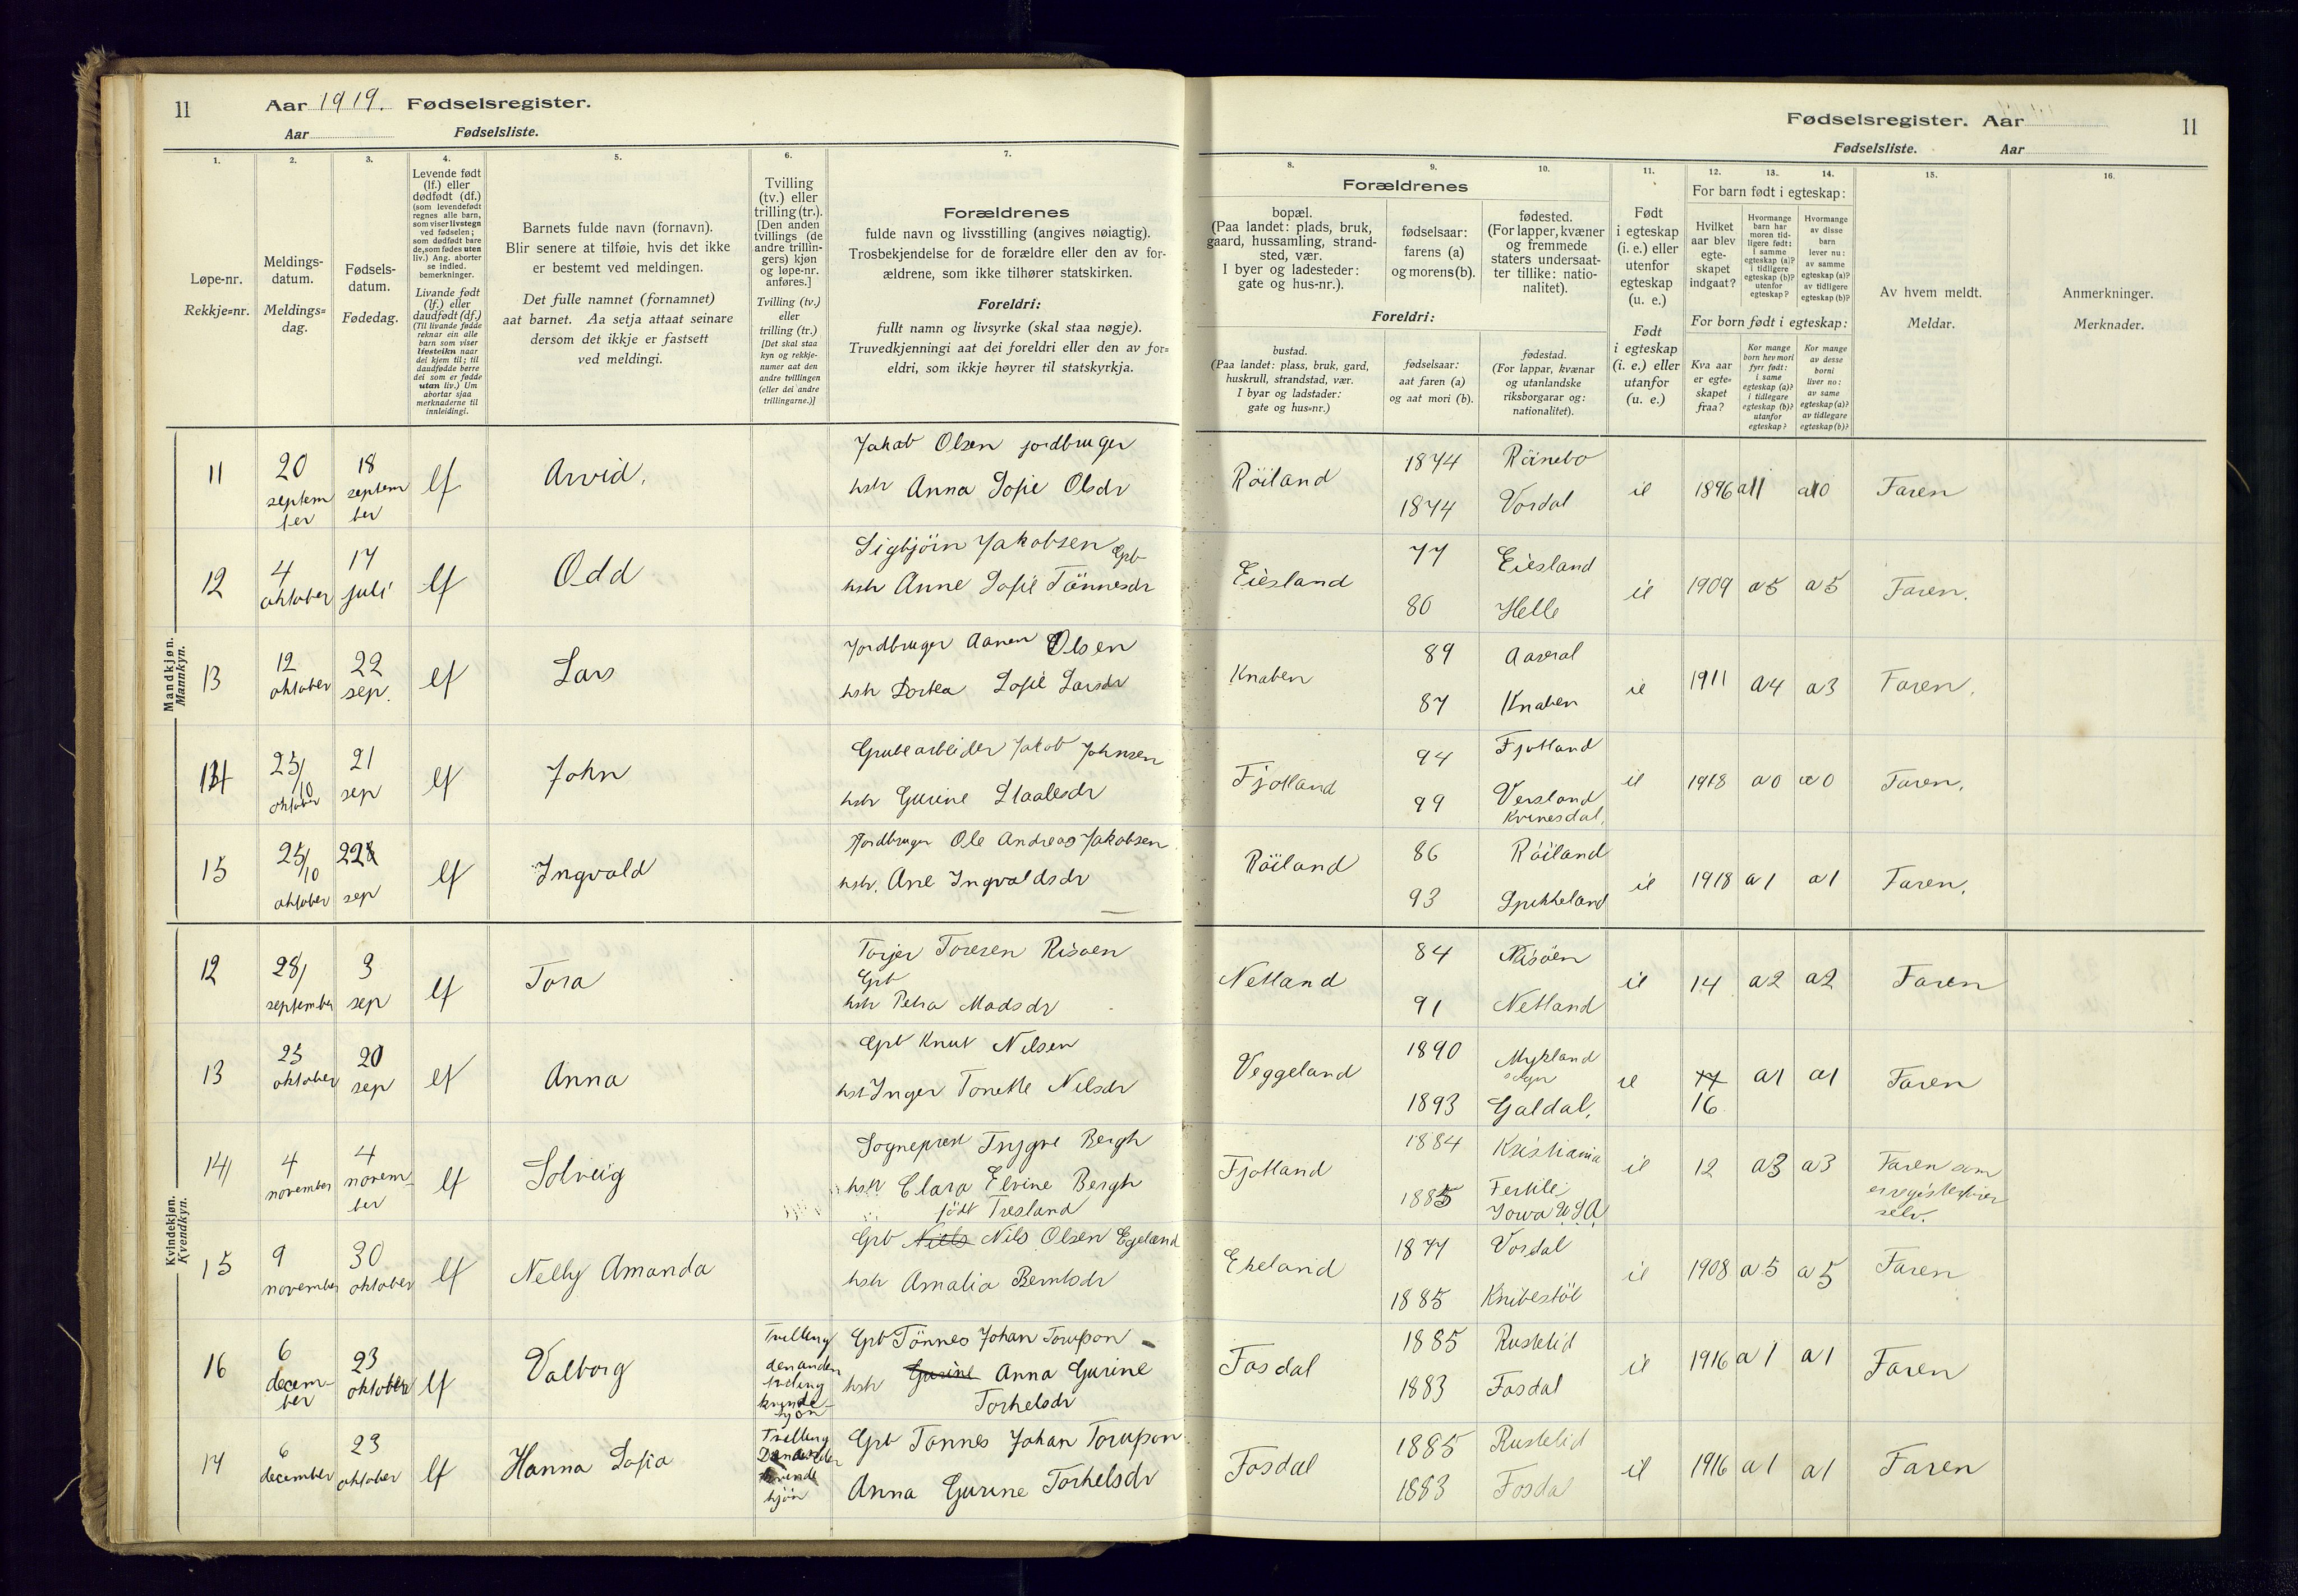 11 Aar 1919. Fødselsregister.
Aar Fødselsliste.
1.
Løpe-nr.
Rekkje-nr.
2.
Meldings-
datum.
Meldings-
dag.
3.
Fødsels-
datum.
Fødedag.
4.
Levende født
(lf.) eller
dødfødt (df.)
(som levendefødt
regnes alle barn,
som viser livstegn
ved fødselen;
som dødfødt bare
de, som fødes uten
liv.) Ang. aborter
se indled.
bemerkninger.
Livande født
(lf.) eller
daudfødt (df.)
(Til livande fødde
reknar ein alle
barn som viser
livsteikn naar
dei kjem til; til
daudfødde berre
dei som er fødde
utan liv.) Um
abortar sjaa
merknaderne til
innleidingi.
5.
Barnets fulde navn (fornavn).
Blir senere at tilføie, hvis det ikke
er bestemt ved meldingen.
Det fulle namnet (fornamnet)
aat barnet. Aa setja attaat seinare
dersom det ikkje er fastsett
ved meldingi.
6.
Tvilling
(tv.) eller
trilling (tr.).
[Den anden
tvillings (de
andre trillin-
gers) kjøn
og løpe-nr.
anføres.]
Tvilling (tv.)
eller
trilling (tr.)
[Det skal staa
kyn og rekkje-
numer aat den
andre tvillingen
(eller dei andre
trillingarne.)]
7.
Forældrenes
fulde navn og livsstilling (angives nøiagtig).
Trosbekjendelse for de forældre eller den av for-
ældrene, som ikke tilhører statskirken.
Foreldri:
fullt namn og livsyrke (skal staa nøgje).
Truvedkjenningi aat dei foreldri eller den av for-
eldri, som ikkje høyrer til statskyrkja.
Mandkjøn.
Mannkyn.
11 20 september 18 september lf Arvid.
Jakob Olsen jordbruger
hstr Anna Sofie Olsdr
12 4 oktober 17 juli lf Odd
Sigbjörn Jakobsen Gpb
hstr Anne Sofie Tönnesdr
13 12 oktober 22 sep. lf Lars
Jordbruger Aanen Olsen
hstr Dortea Sofie Larsdr
14 25/10 oktober 21 sep lf John
Grubearbeider Jakob Johnsen
hstr Gurine Staalesdr
15 25/10 oktober 22 sep lf Ingvald
Jordbruger Ole Andreas Jakobsen
hstr. Ane Ingvaldsdr
Kvindekjøn.
Kvendkyn.
12 28/ september 3 sep lf Tora
Torjer Toresen Risöen
Gpb
hstr Petra Madsdr
13 25 oktober 20 sep lf Anna
Gpb Knut Nilsen
hst Inger Tonette Nilsdr
14 4 november 4 november lf Solveig
Sogneprest Trygve Bergh
hstr Clara Elvine Bergh
födt Tresland
15 9 november 30 oktober lf Nelly Amanda
Gpb Niels Nils Olsen Egeland
hstr Amalia Berntsdr
16 6 december 23 oktober lf Valborg
Tvilling
den anden
tvilling
kvinde-
kjön
Gpb Tönnes Johan Torupson
hstr Gurine Anna Gurine
Torkelsdr
17 6 december 23 oktober lf Hanna Sofia
Tvilling
Den anden
kvinde
kjön
Gpb Tönnes Johan Torupson
Anna Gurine Torkelsdr
Fødselsregister. Aar 11
Fødselsliste. Aar
Forældrenes
Foreldri:
8.
bopæl.
(Paa landet: plads, bruk,
gaard, hussamling, strand-
sted, vær.
I byer og ladesteder:
gate og hus-nr.).
bustad.
(Paa landet: plass, bruk, gard,
huskrull, strandstad, vær.
I byar og ladstader:
gate og hus-nr.)
9.
fødselsaar:
farens (a)
og morens (b).
fødselsaar:
aat faren (a)
og aat mori (b).
10.
fødested.
(For lapper, kvæner
og fremmede
staters undersaat-
ter tillike: natio-
nalitet).
fødestad.
(For lappar, kvænar
og utanlandske
riksborgarar og:
nationalitet).
11.
Født
i egteskap
(i. e.) eller
utenfor
egteskap
(u. e.)
Født
i egteskap
(i. e.) eller
utanfor
(u. e.)
12. 13. 14.
For barn født i egteskap:
Hvilket
aar blev
egte-
skapet
indgaat?
Hvormange
barn har
moren tid-
ligere født:
i samme
egteskap (a)?
i tidligere
egteskap (b)?
utenfor
egteskap?
Hvormange
av disse
barn
lever nu:
av samme
egteskap (a)?
av tidligere
egteskap (b)?
For born født i egteskap:
Kva aar
er egte-
skapet
fraa?
Kor mange
born hev mori
fyrr født:
i same
egteskap (a)?
i tidlegare
egteskap (b)?
utanfor
egteskap?
Kor mange
av desse
borni
liver no:
av same
egteskap (a)?
av tidlegare
egteskap (b)?
15.
Av hvem meldt.
Meldar.
16.
Anmerkninger.
Merknader.
Röiland 1874 Röinebo ie 1896 a11 a10 Faren
1874 Vordal
Eiesland 77 Eiesland ie 1909 a5 a5 Faren.
80 Helle
Knaben 89 Aaseral ie 1911 a4 a3 Faren.
87 Knaben
Fjotland 94 Fjotland ie 1918 a0 a0 Faren.
99 Versland
Kvinesdal.
Röiland 86 Röiland ie 1918 a1 a1 Faren.
93 Spikkeland
Netland 84 Risöen ie 14 a2 a2 Faren
91 Netland
Veggeland 1890 Mykland sogn ie 17 16 a1 a1 Faren
1893 Galdal.
Fjotland 1884 Kristiania ie 12 a3 a3 Faren som
er registerförer
selv.
1885 Fertile
Iowa U.S.A.
Ekeland 1877 Vordal ie 1908 a5 a5 Faren
1885 Knibestöl
Fosdal 1885 Rustelid ie 1916 a1 a1 Faren
1883 Fosdal
Fosdal 1885 Rustelid ie 1916 a1 a1 Faren
1883 Fosdal